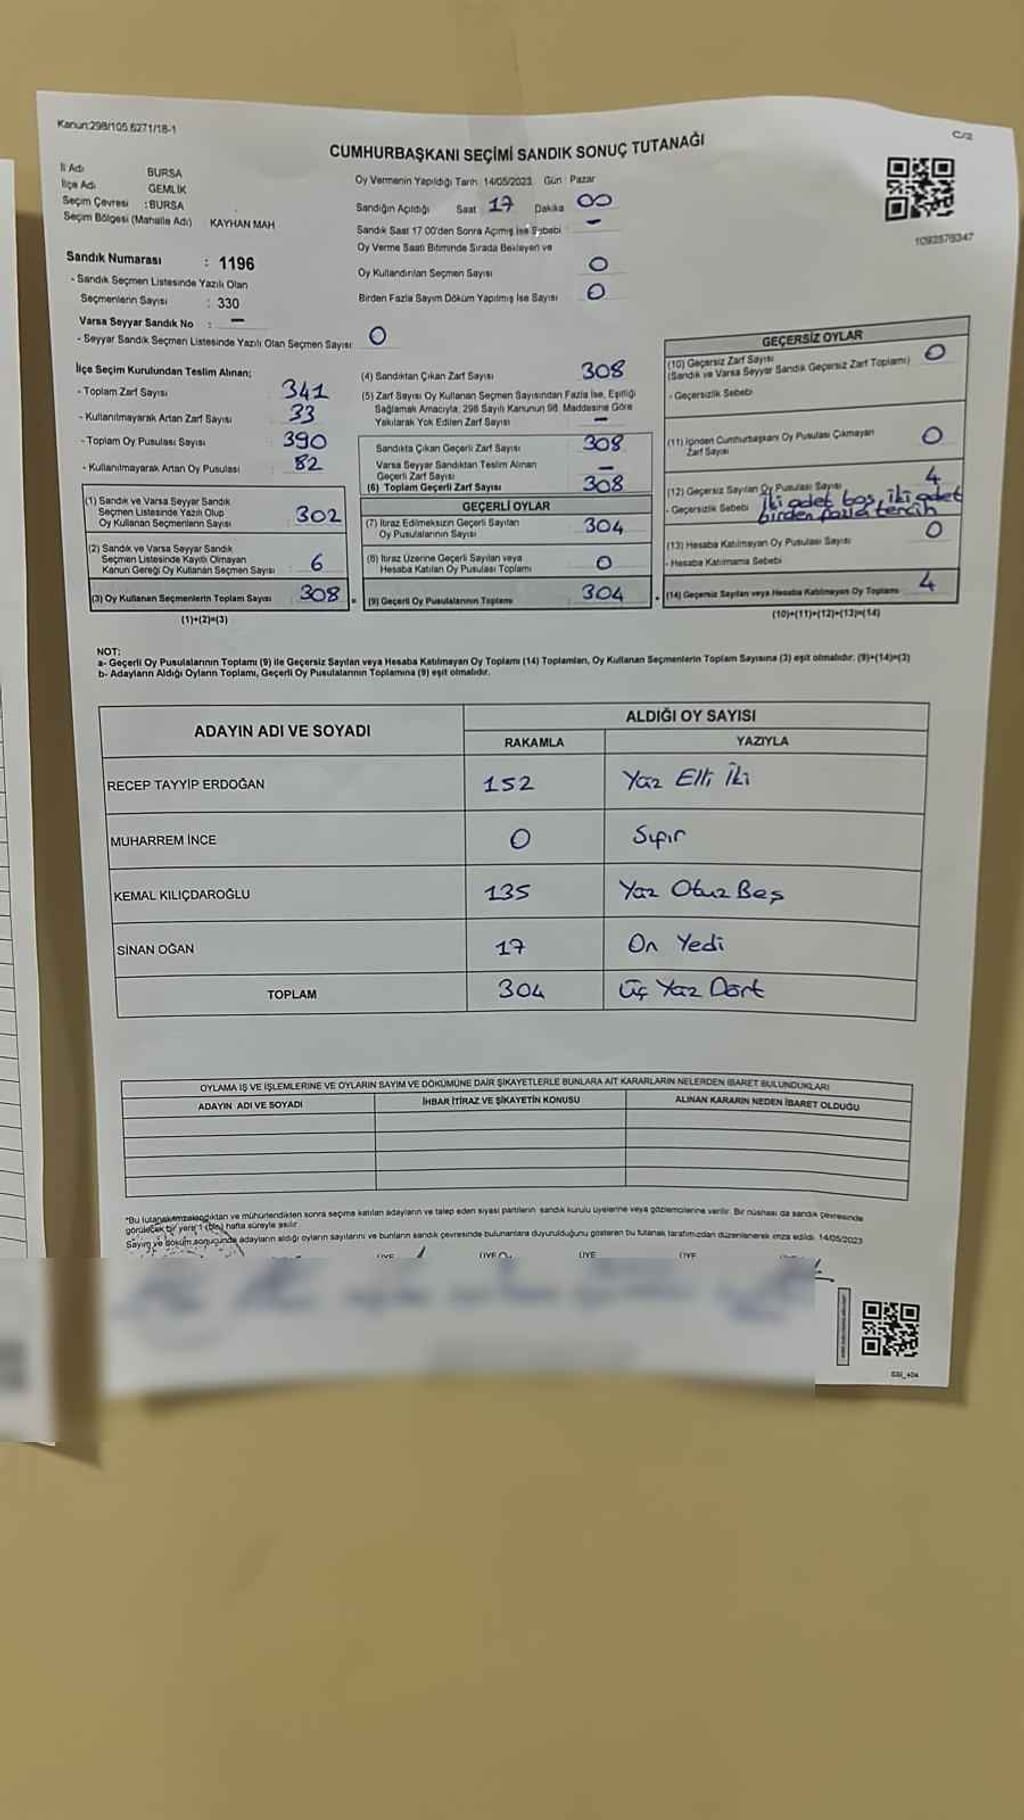 Kanun:298/105.6271/18-1
C/2
CUMHURBAŞKANI SEÇİMİ SANDIK SONUÇ TUTANAĞI
İl Adı BURSA
İlçe Adı GEMLİK
Seçim Çevresi :BURSA
Seçim Bölgesi (Mahalle Adı) KAYHAN MAH
Oy Vermenin Yapıldığı Tarih: 14/05/2023 Gün : Pazar
Sandığın Açıldığı Saat 17 Dakika 00
Sandık Saat 17.00'den Sonra Açılmış İse Sebebi -
Oy Verme Saati Bitiminde Sırada Bekleyen ve
Oy Kullandırılan Seçmen Sayısı 0
Birden Fazla Sayım Döküm Yapılmış İse Sayısı 0
1092576347
Sandık Numarası : 1196
- Sandık Seçmen Listesinde Yazılı Olan
Seçmenlerin Sayısı : 330
Varsa Seyyar Sandık No : -
- Seyyar Sandık Seçmen Listesinde Yazılı Olan Seçmen Sayısı: 0
İlçe Seçim Kurulundan Teslim Alınan;
- Toplam Zarf Sayısı 341
- Kullanılmayarak Artan Zarf Sayısı 33
- Toplam Oy Pusulası Sayısı 390
- Kullanılmayarak Artan Oy Pusulası 82
(1) Sandık ve Varsa Seyyar Sandık
Seçmen Listesinde Yazılı Olup
Oy Kullanan Seçmenlerin Sayısı 302
(2) Sandık ve Varsa Seyyar Sandık
Seçmen Listesinde Kayıtlı Olmayan
Kanun Gereği Oy Kullanan Seçmen Sayısı 6
(3) Oy Kullanan Seçmenlerin Toplam Sayısı 308
(1)+(2)=(3)
(4) Sandıktan Çıkan Zarf Sayısı 308
(5) Zarf Sayısı Oy Kullanan Seçmen Sayısından Fazla İse, Eşitliği
Sağlamak Amacıyla, 298 Sayılı Kanunun 98. Maddesine Göre
Yakılarak Yok Edilen Zarf Sayısı -
Sandıkta Çıkan Geçerli Zarf Sayısı 308
Varsa Seyyar Sandıktan Teslim Alınan
Geçerli Zarf Sayısı -
(6) Toplam Geçerli Zarf Sayısı 308
GEÇERLİ OYLAR
(7) İtiraz Edilmeksizin Geçerli Sayılan
Oy Pusulalarının Sayısı 304
(8) İtiraz Üzerine Geçerli Sayılan veya
Hesaba Katılan Oy Pusulası Toplamı 0
(9) Geçerli Oy Pusulalarının Toplamı 304
GEÇERSİZ OYLAR
(10) Geçersiz Zarf Sayısı
(Sandık ve Varsa Seyyar Sandık Geçersiz Zarf Toplamı) 0
- Geçersizlik Sebebi
(11) İçinden Cumhurbaşkanı Oy Pusulası Çıkmayan
Zarf Sayısı 0
(12) Geçersiz Sayılan Oy Pusulası Sayısı 4
- Geçersizlik Sebebi İki adet boş, iki adet
birden fazla tercih
(13) Hesaba Katılmayan Oy Pusulası Sayısı 0
- Hesaba Katılmama Sebebi
(14) Geçersiz Sayılan veya Hesaba Katılmayan Oy Toplamı 4
(10)+(11)+(12)+(13)=(14)
NOT:
a- Geçerli Oy Pusulalarının Toplamı (9) ile Geçersiz Sayılan veya Hesaba Katılmayan Oy Toplamı (14) Toplamları, Oy Kullanan Seçmenlerin Toplam Sayısına (3) eşit olmalıdır. (9)+(14)=(3)
b- Adayların Aldığı Oyların Toplamı, Geçerli Oy Pusulalarının Toplamına (9) eşit olmalıdır.
ADAYIN ADI VE SOYADI ALDIĞI OY SAYISI
RAKAMLA YAZIYLA
RECEP TAYYİP ERDOĞAN 152 Yüz Elli İki
MUHARREM İNCE 0 Sıfır
KEMAL KILIÇDAROĞLU 135 Yüz Otuz Beş
SİNAN OĞAN 17 On Yedi
TOPLAM 304 Üç Yüz Dört
OYLAMA İŞ VE İŞLEMLERİNE VE OYLARIN SAYIM VE DÖKÜMÜNE DAİR ŞİKAYETLERLE BUNLARA AİT KARARLARIN NELERDEN İBARET BULUNDUKLARI
ADAYIN ADI VE SOYADI İHBAR İTİRAZ VE ŞİKAYETİN KONUSU ALINAN KARARIN NEDEN İBARET OLDUĞU
*Bu tutanak imzalandıktan ve mühürlendikten sonra seçime katılan adayların ve talep eden siyasi partilerin sandık kurulu üyelerine veya gözlemcilerine verilir. Bir nüshası da sandık çevresinde
görülecek bir yere 1 (bir) hafta süreyle asılır.
Sayım ve döküm sonucunda adayların aldığı oyların sayılarını ve bunların sandık çevresinde bulunanlara duyurulduğunu gösteren bu tutanak tarafımızdan düzenlenerek imza edildi. 14/05/2023
ÜYE ÜYE ÜYE ÜYE